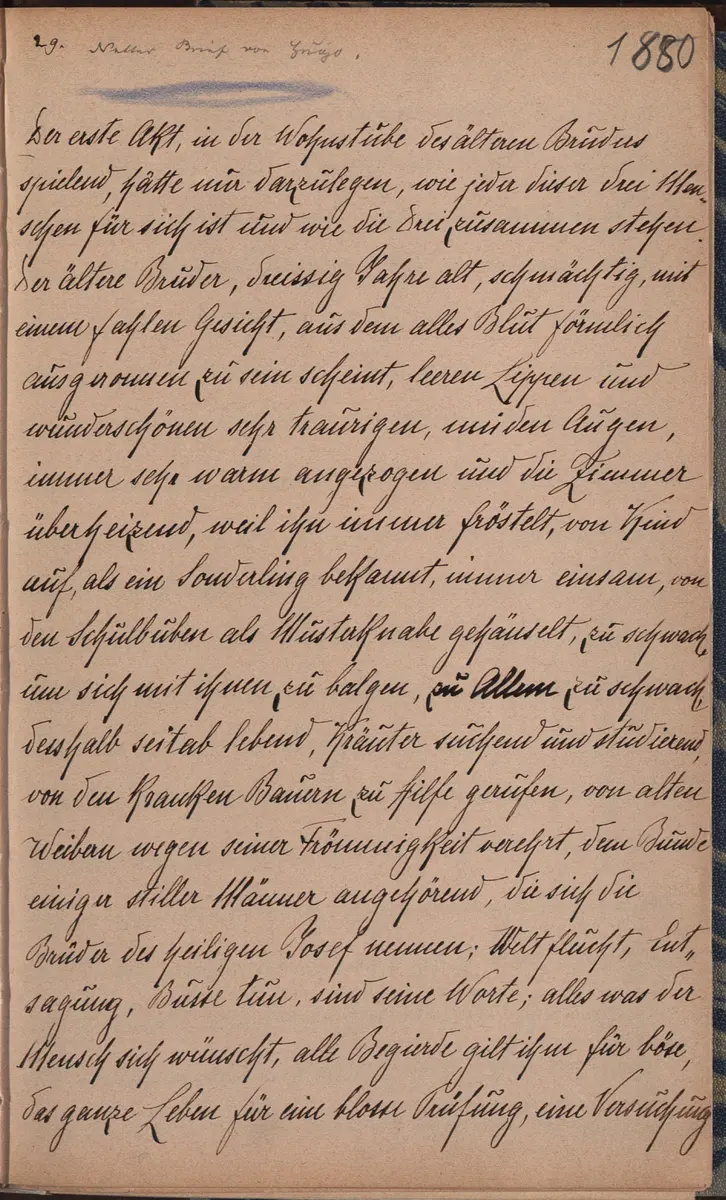 29. Netter Brief von Hugo.
1880
Der erste Akt, in der Wohnstube des älteren Bruders
spielend, hätte nur darzulegen, wie jeder dieser drei Men-
schen für sich ist und wie die Drei zusammen stehen.
Der ältere Bruder, dreissig Jahre alt, schmächtig, mit
einem fahlen Gesicht, aus dem alles Blut förmlich
ausgeronnen zu sein scheint, leeren Lippen und
wunderschönen sehr traurigen, müden Augen,
immer sehr warm angezogen und die Zimmer
überheizend, weil ihn immer fröstelt, von Kind
auf, als ein Sonderling bekannt, immer einsam, von
den Schulbuben als Musterknabe gehänselt, zu schwach,
um sich mit ihnen zu balgen, zu Allem zu schwach,
desshalb seitab lebend, Kräuter suchend und studierend,
von den kranken Bauern zu Hilfe gerufen, von alten
Weibern wegen seiner Frömmigkeit verehrt, dem Bunde
einiger stiller Männer angehörend, die sich die
Brüder des heiligen Josef nennen; Weltflucht, Ent-
sagung, Busse tun, sind seine Worte; alles was der
Mensch sich wünscht, alle Begierde gilt ihm für böse,
das ganze Leben für eine blosse Prüfung, eine Versuchung